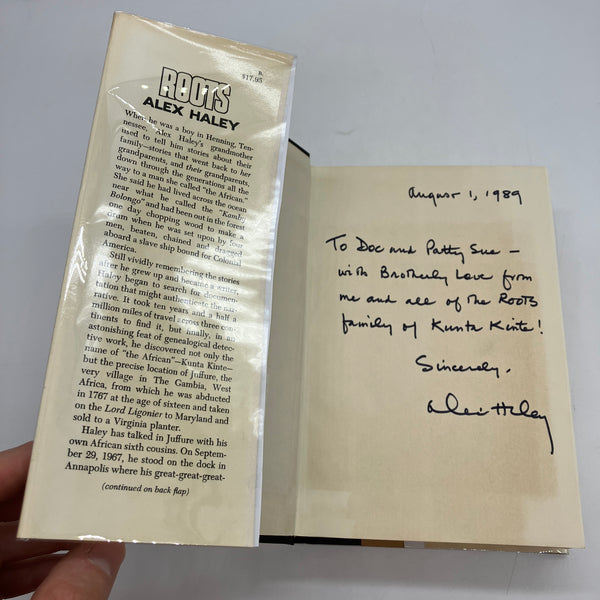 R.
$17.95
ROOTS
ALEX HALEY
When he was a boy in Henning, Ten-
nessee, Alex Haley's grandmother
used to tell him stories about their
family—stories that went back to her
grandparents, and their grandparents,
down through the generations all the
way to a man she called "the African."
She said he had lived across the ocean
near what he called the "Kamby
Bolongo" and had been out in the forest
one day chopping wood to make a
drum when he was set upon by four
men, beaten, chained and dragged
aboard a slave ship bound for Colonial
America.
Still vividly remembering the stories
after he grew up and became a writer,
Haley began to search for documen-
tation that might authenticate the nar-
rative. It took ten years and a half a
million miles of travel across three con-
tinents to find it, but finally, in an
astonishing feat of genealogical detec-
tive work, he discovered not only the
name of "the African"—Kunta Kinte—
but the precise location of Juffure, the
very village in The Gambia, West
Africa, from which he was abducted
in 1767 at the age of sixteen and taken
on the Lord Ligonier to Maryland and
sold to a Virginia planter.
Haley has talked in Juffure with his
own African sixth cousins. On Septem-
ber 29, 1967, he stood on the dock in
Annapolis where his great-great-great-
(continued on back flap)
August 1, 1989
To Doc and Patty Sue —
with Brotherly Love from
me and all of the ROOTS
family of Kunta Kinte!
Sincerely,
Alex Haley